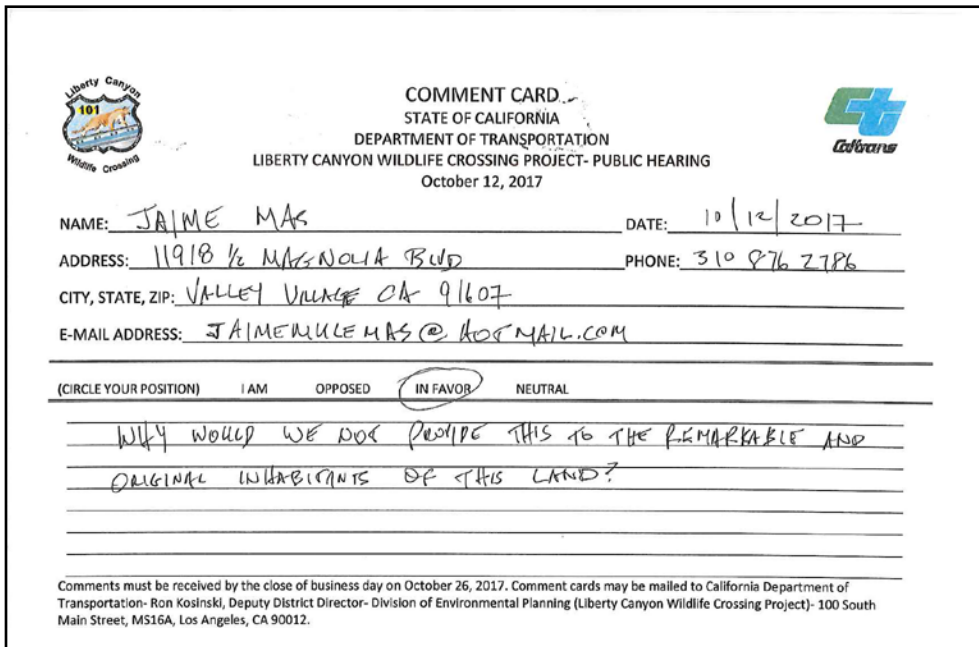 Liberty Canyon
101
Wildlife Crossing
COMMENT CARD
STATE OF CALIFORNIA
DEPARTMENT OF TRANSPORTATION
LIBERTY CANYON WILDLIFE CROSSING PROJECT- PUBLIC HEARING
October 12, 2017
Caltrans
NAME: JAIME MAS DATE: 10/12/2017
ADDRESS: 11918 ½ MAGNOLIA BLVD PHONE: 310 876 2786
CITY, STATE, ZIP: VALLEY VILLAGE CA 91607
E-MAIL ADDRESS: JAIMEMULEMAS@HOTMAIL.COM
(CIRCLE YOUR POSITION) I AM OPPOSED IN FAVOR NEUTRAL
WHY WOULD WE NOT PROVIDE THIS TO THE REMARKABLE AND
ORIGINAL INHABITANTS OF THIS LAND?
Comments must be received by the close of business day on October 26, 2017. Comment cards may be mailed to California Department of
Transportation- Ron Kosinski, Deputy District Director- Division of Environmental Planning (Liberty Canyon Wildlife Crossing Project)- 100 South
Main Street, MS16A, Los Angeles, CA 90012.